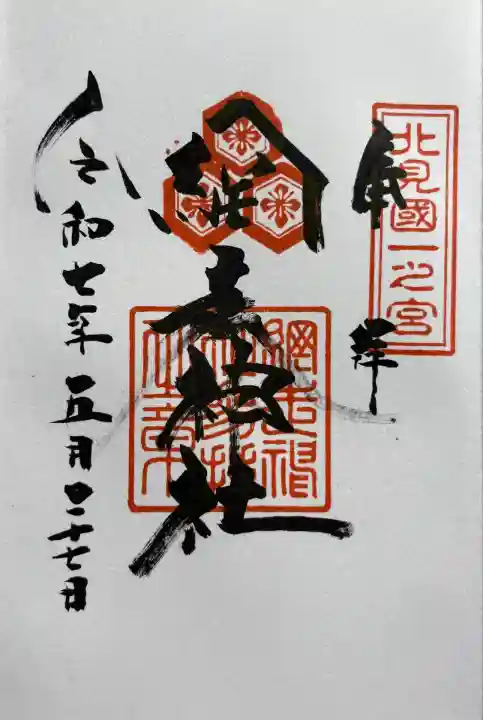 北見國一之宮
奉拝
網走神社
網走神
之章
令和七年五月二十七日